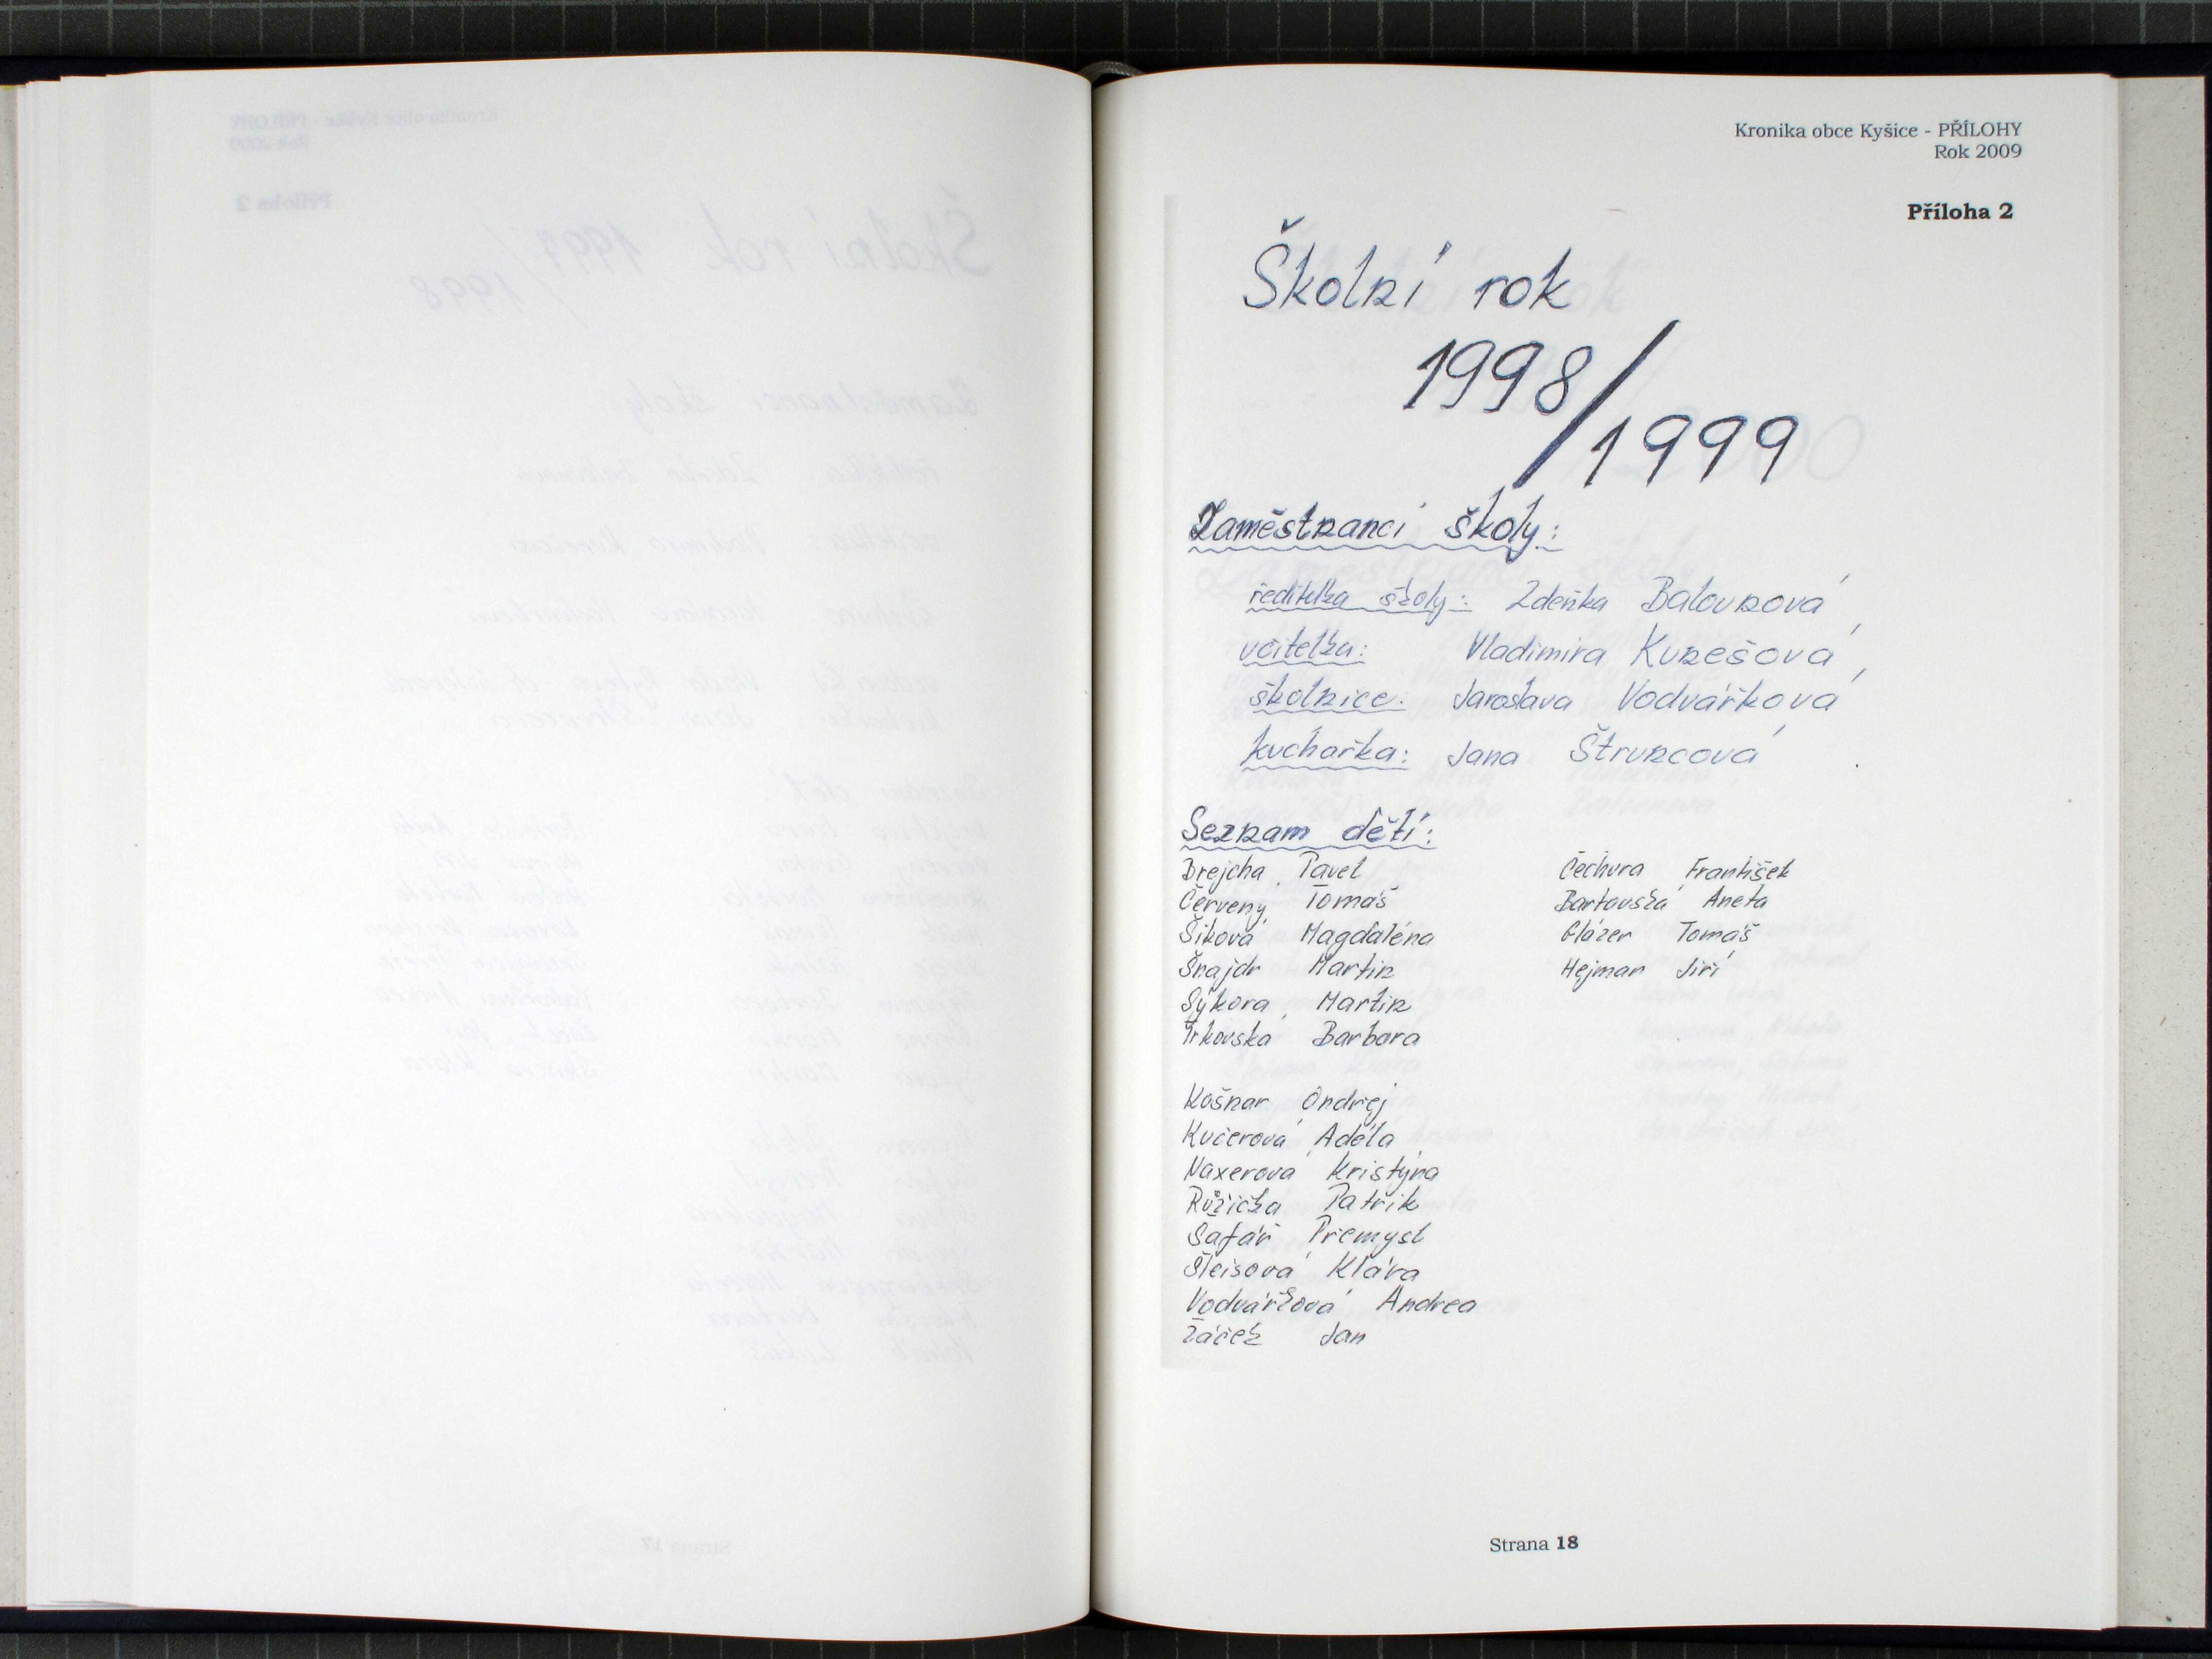 Kronika obce Kyšice - PŘÍLOHY
Rok 2009
Příloha 2
Školní rok
1998/
1999
Zaměstnanci školy:
ředitelka školy: Zdeňka Balounová,
učitelka: Vladimíra Kunešová,
školnice: Jaroslava Vodvářková
kuchařka: Jana Štruncová
Seznam dětí:
Drejcha Pavel
Červený Tomáš
Šiková Magdaléna
Šnajdr Martin
Sýkora Martin
Trkovská Barbara
Košnar Ondřej
Kučerová Adéla
Naxerová Kristýna
Růžička Patrik
Šafář Přemysl
Šleisová Klára
Vodvářková Andrea
Žáček Jan
Čechura František
Bartovská Aneta
Glázer Tomáš
Hejman Jiří
Strana 18